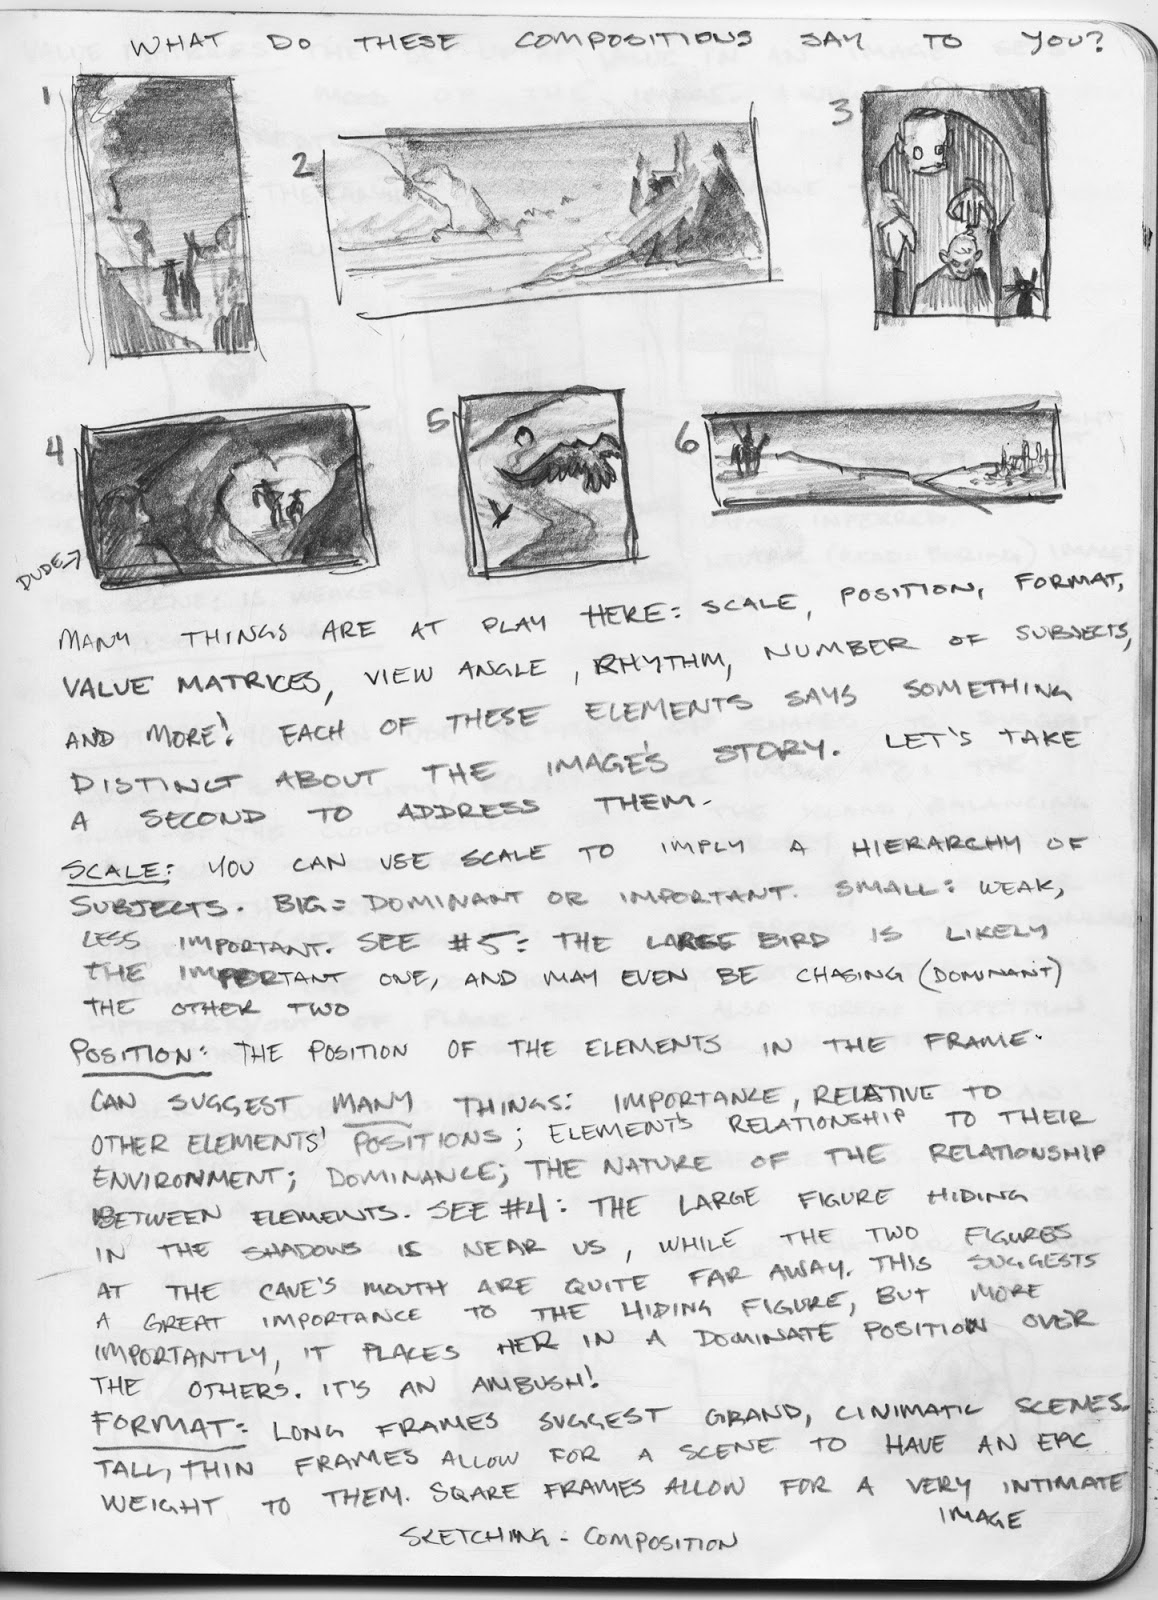 WHAT DO THESE COMPOSITIONS SAY TO YOU?
1
2
3
4
5
6
DUDE→
MANY THINGS ARE AT PLAY HERE: SCALE, POSITION, FORMAT,
VALUE MATRICES, VIEW ANGLE, RHYTHM, NUMBER OF SUBJECTS,
AND MORE! EACH OF THESE ELEMENTS SAYS SOMETHING
DISTINCT ABOUT THE IMAGE'S STORY. LET'S TAKE
A SECOND TO ADDRESS THEM.
SCALE: YOU CAN USE SCALE TO IMPLY A HIERARCHY OF
SUBJECTS. BIG = DOMINANT OR IMPORTANT. SMALL: WEAK,
LESS IMPORTANT. SEE #5: THE LARGE BIRD IS LIKELY
THE IMPORTANT ONE, AND MAY EVEN BE CHASING (DOMINANT)
THE OTHER TWO
POSITION: THE POSITION OF THE ELEMENTS IN THE FRAME.
CAN SUGGEST MANY THINGS: IMPORTANCE, RELATIVE TO
OTHER ELEMENTS' POSITIONS; ELEMENT'S RELATIONSHIP TO THEIR
ENVIRONMENT; DOMINANCE; THE NATURE OF THE RELATIONSHIP
BETWEEN ELEMENTS. SEE #4: THE LARGE FIGURE HIDING
IN THE SHADOWS IS NEAR US, WHILE THE TWO FIGURES
AT THE CAVE'S MOUTH ARE QUITE FAR AWAY. THIS SUGGESTS
A GREAT IMPORTANCE TO THE HIDING FIGURE, BUT MORE
IMPORTANTLY, IT PLACES HER IN A DOMINATE POSITION OVER
THE OTHERS. IT'S AN AMBUSH!
FORMAT: LONG FRAMES SUGGEST GRAND, CINIMATIC SCENES.
TALL, THIN FRAMES ALLOW FOR A SCENE TO HAVE AN EPIC
WEIGHT TO THEM. SQARE FRAMES ALLOW FOR A VERY INTIMATE
IMAGE
SKETCHING - COMPOSITION